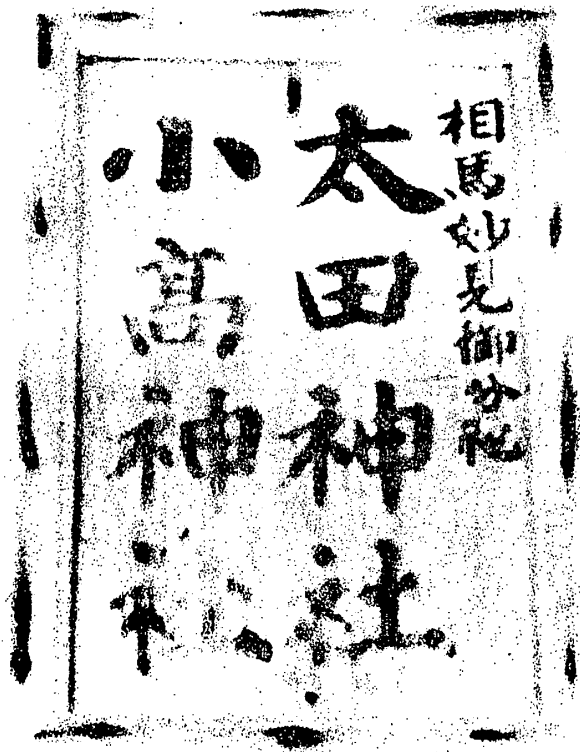 相馬妙見御分祀
太田神社
小高神社